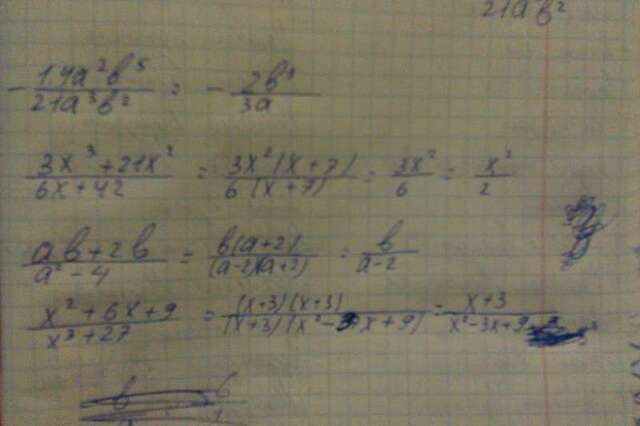 21ab²
-14a²b⁵/21a³b² = -2b³/3a
3x³+21x²/6x+42 = 3x²(x+7)/6(x+7) = 3x²/6 = x²/2
ab+2b/a²-4 = b(a+2)/(a-2)(a+2) = b/a-2
x²+6x+9/x³+27 = (x+3)(x+3)/(x+3)(x²-3x+9) = x+3/x²-3x+9